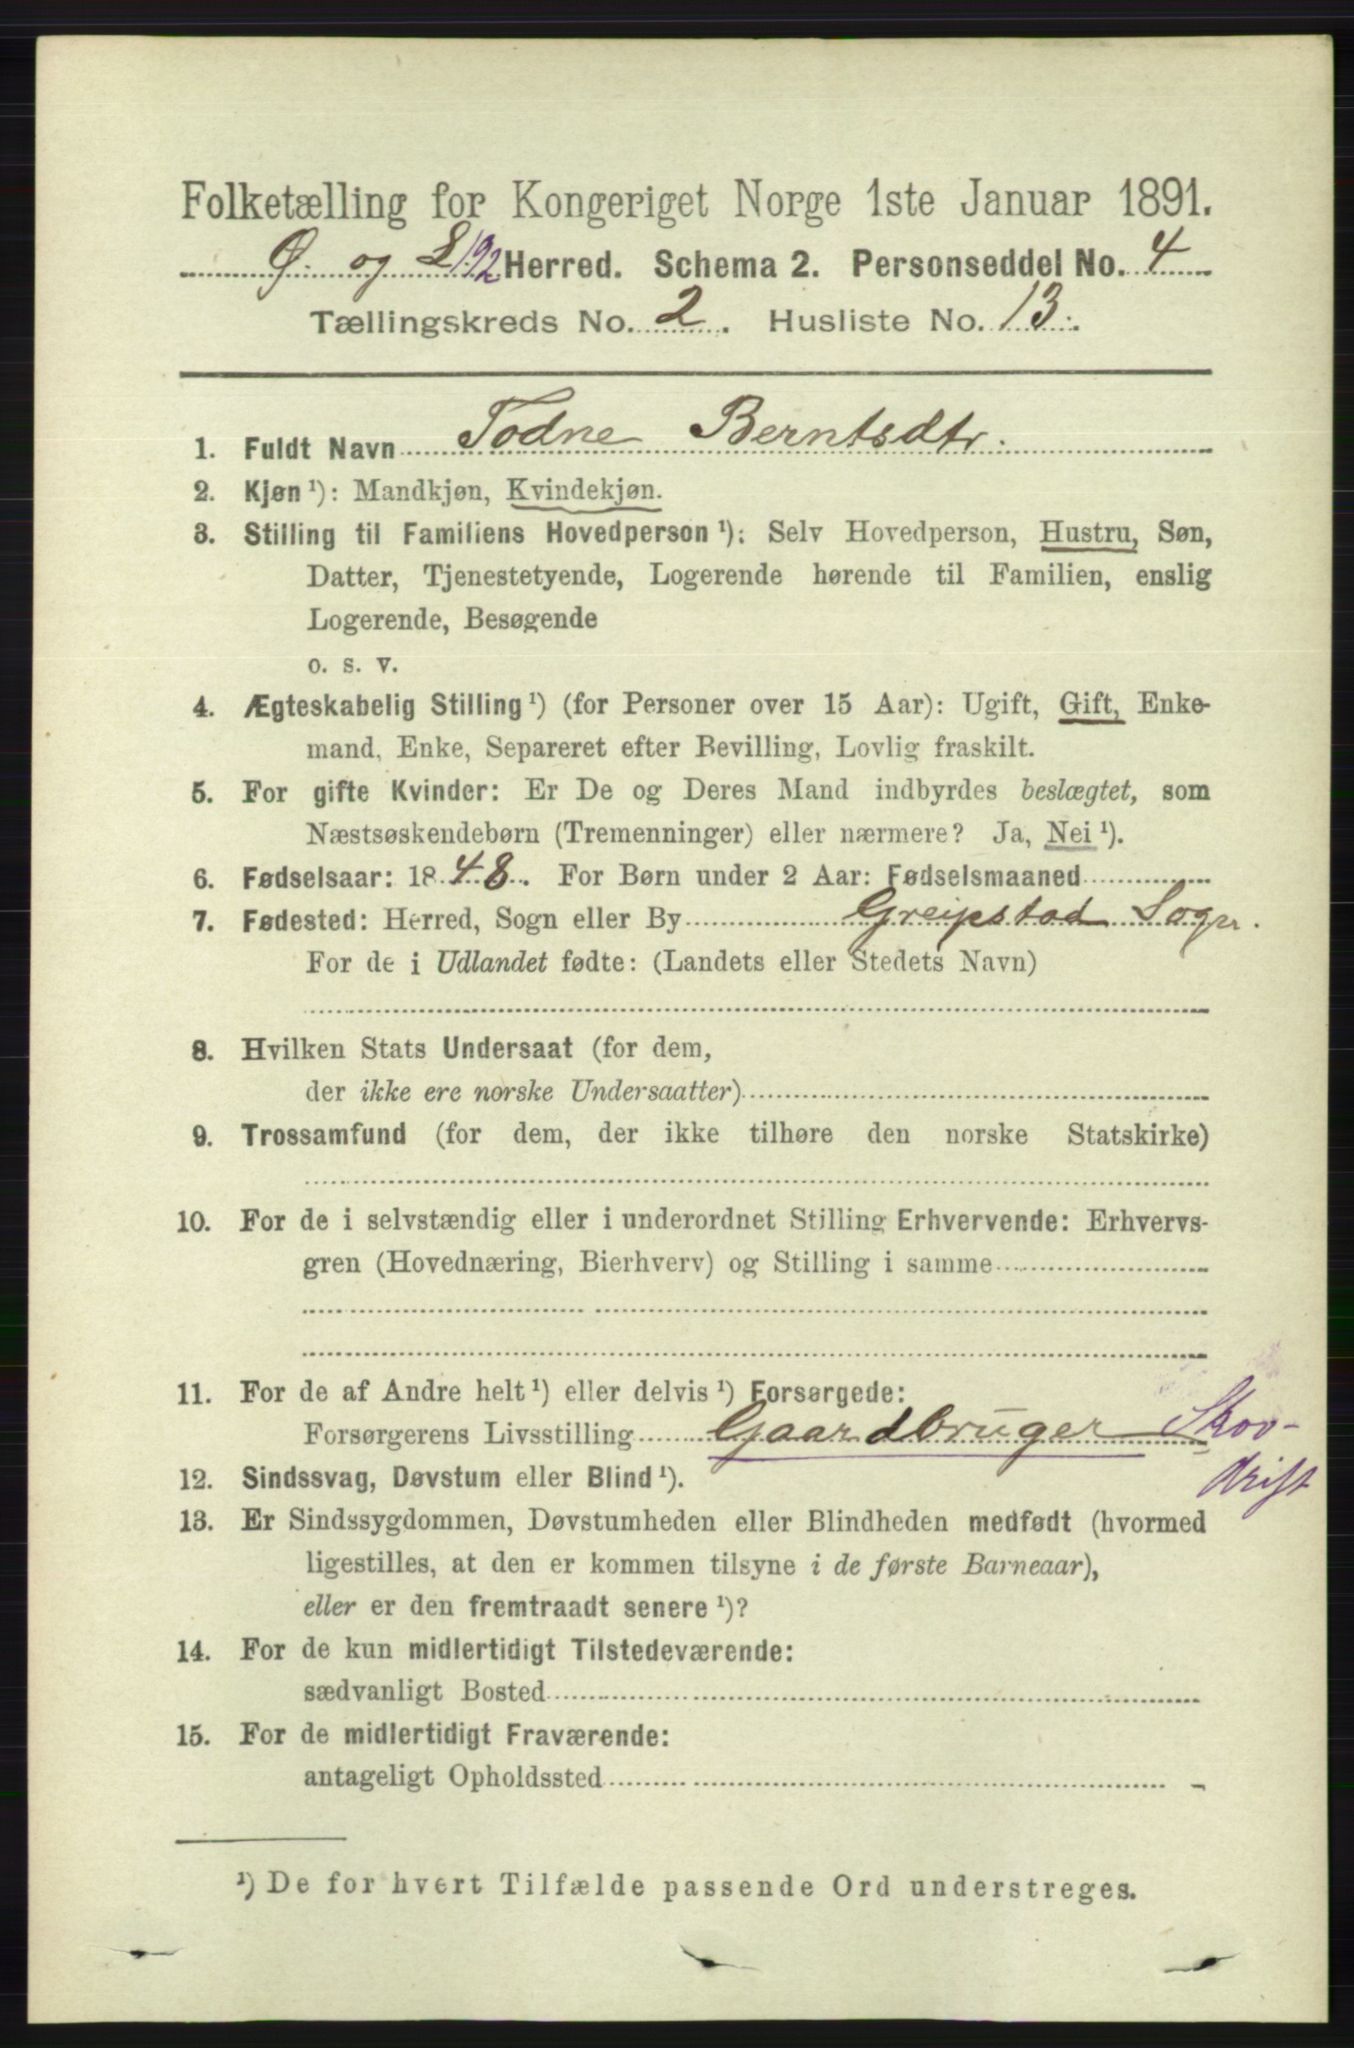 Folketælling for Kongeriget Norge 1ste Januar 1891.
Ø. og L 192 Herred. Schema 2. Personseddel No. 4
Tællingskreds No. 2. Husliste No. 13.
1. Fuldt Navn Todne Berntsdtr.
2. Kjøn ¹): Mandkjøn, Kvindekjøn.
3. Stilling til Familiens Hovedperson ¹): Selv Hovedperson, Hustru, Søn,
Datter, Tjenestetyende, Logerende hørende til Familien, enslig
Logerende, Besøgende
o. s. v.
4. Ægteskabelig Stilling ¹) (for Personer over 15 Aar): Ugift, Gift, Enke-
mand, Enke, Separeret efter Bevilling, Lovlig fraskilt.
5. For gifte Kvinder: Er De og Deres Mand indbyrdes beslægtet, som
Næstsøskendebørn (Tremenninger) eller nærmere? Ja, Nei ¹).
6. Fødselsaar: 1848. For Børn under 2 Aar: Fødselsmaaned
7. Fødested: Herred, Sogn eller By Greipstad Sogn.
For de i Udlandet fødte: (Landets eller Stedets Navn)
8. Hvilken Stats Undersaat (for dem,
der ikke ere norske Undersaatter)
9. Trossamfund (for dem, der ikke tilhøre den norske Statskirke)
10. For de i selvstændig eller i underordnet Stilling Erhvervende: Erhvervs-
gren (Hovednæring, Bierhverv) og Stilling i samme
11. For de af Andre helt ¹) eller delvis ¹) Forsørgede:
Forsørgerens Livsstilling Gaardbruger Skov-
drift
12. Sindssvag, Døvstum eller Blind ¹).
13. Er Sindssygdommen, Døvstumheden eller Blindheden medfødt (hvormed
ligestilles, at den er kommen tilsyne i de første Barneaar),
eller er den fremtraadt senere ¹)?
14. For de kun midlertidigt Tilstedeværende:
sædvanligt Bosted
15. For de midlertidigt Fraværende:
antageligt Opholdssted
¹) De for hvert Tilfælde passende Ord understreges.